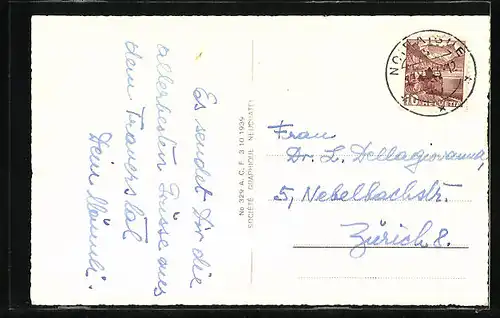 Es sendet Dir die
allerbesten Grüsse aus
dem Traverstal
Dein Männli.
No 329 A. C. F. 3 10 1939
SOCIÉTÉ GRAPHIQUE NEUCHATEL
NOIRAIGUE
10
Frau
Dr. L. Dellagiovanna,
5, Nebelbachstr.
Zürich 8.